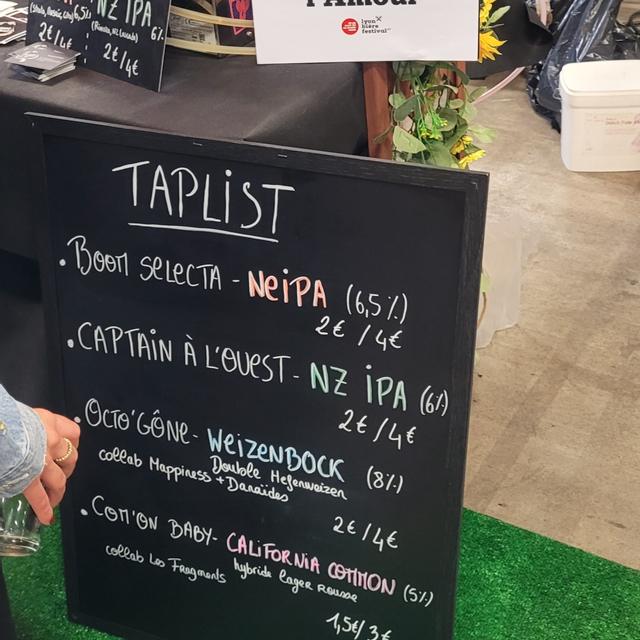 NZ IPA
6%
2€/4€
2€/4€
l'Amour
lyon
bière
festival
TAPLIST
• BOOM SELECTA - NEIPA (6,5%)
2€/4€
• CAPTAIN À L'OUEST - NZ IPA (6%)
2€/4€
• OCTO'GÔNE - WEIZENBOCK (8%)
Double Hefenweizen
collab Mappiness + Danaïdes
2€/4€
• COM'ON BABY - CALIFORNIA COMMON (5%)
hybride lager rousse
collab Les Fragments
1,5€/3€